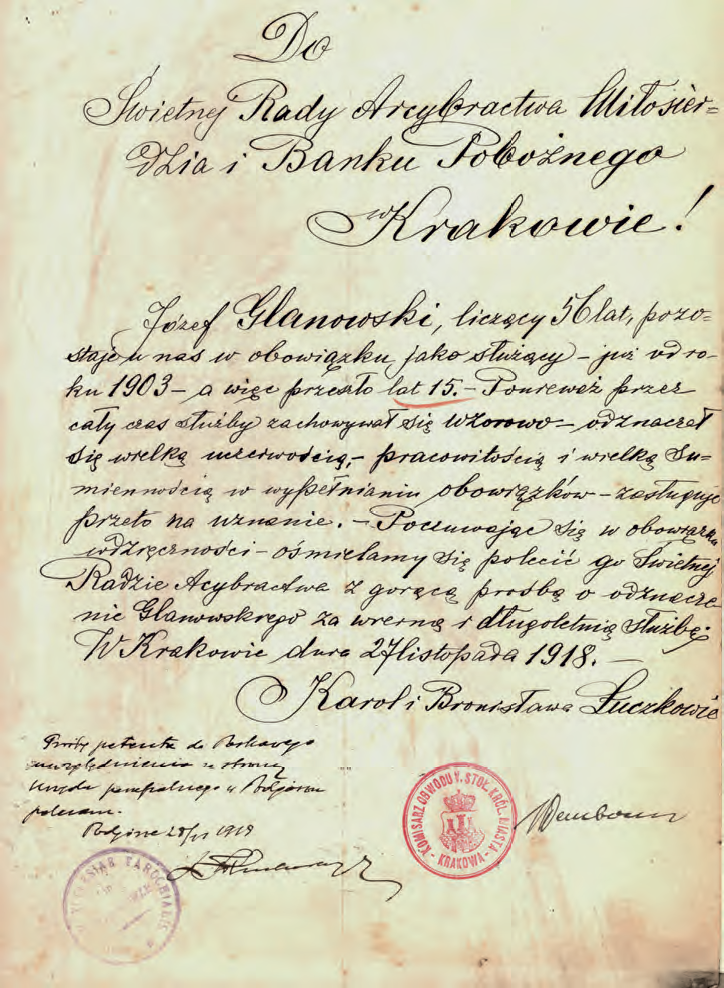 Do
Świetnej Rady Arcybractwa Miłosier=
dzia i Banku Pobożnego
w Krakowie!
Józef Glanowski, liczący 56 lat, pozo-
staje u nas w obowiązku jako służący – już od ro-
ku 1903 – a więc przeszło lat 15. – Ponieważ przez
cały czas służby zachowywał się wzorowo – odznaczał
się wielką uczciwością, – pracowitością i wielką su-
miennością w wypełnianiu obowiązków – zasługuje
przeto na uznanie. – Poczuwając się w obowiązku
wdzięczności – ośmielamy się polecić go Świetnej
Radzie Acybractwa z gorącą prośbą o odznacze
nie Glanowskiego za wierną i długoletnią służbę.
W Krakowie dnia 27 listopada 1918. –
Karol i Bronisława Łuczkowie
Prośbę petenta do łaskawego
uwzględnienia ze strony
Urzędu parafialnego w Podgórzu
polecam.
Podgórze 28/XI 1918
KOMISARZ OBWODU V. STOŁ. KRÓL. MIASTA
KRAKOWA